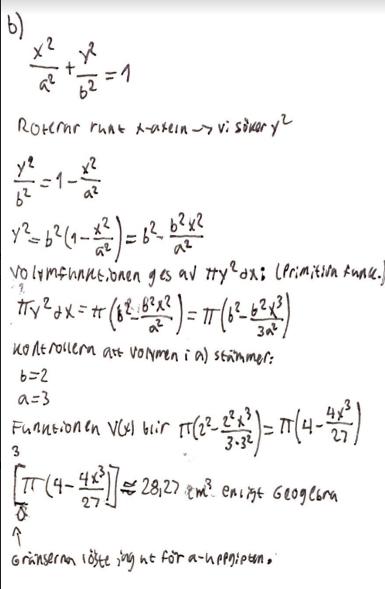 b)
x²/a² + y²/b² = 1
Roterar runt x-axeln → vi söker y²
y²/b² = 1 - x²/a²
y² = b²(1 - x²/a²) = b² - b²x²/a²
Volymfunktionen ges av πy²dx: (Primitiva funk.)
πy²dx = π(b² - b²x²/a²) = π(b² - b²x³/3a²)
Kontrollera att volymen i a) stämmer:
b=2
a=3
Funktionen V(x) blir π(2² - 2²x³/3·3²) = π(4 - 4x³/27)
3
[π(4 - 4x³/27)] ≈ 28,27 cm³ enligt Geogebra
0
↑
Gränserna löste jag ut för a-uppgiften.